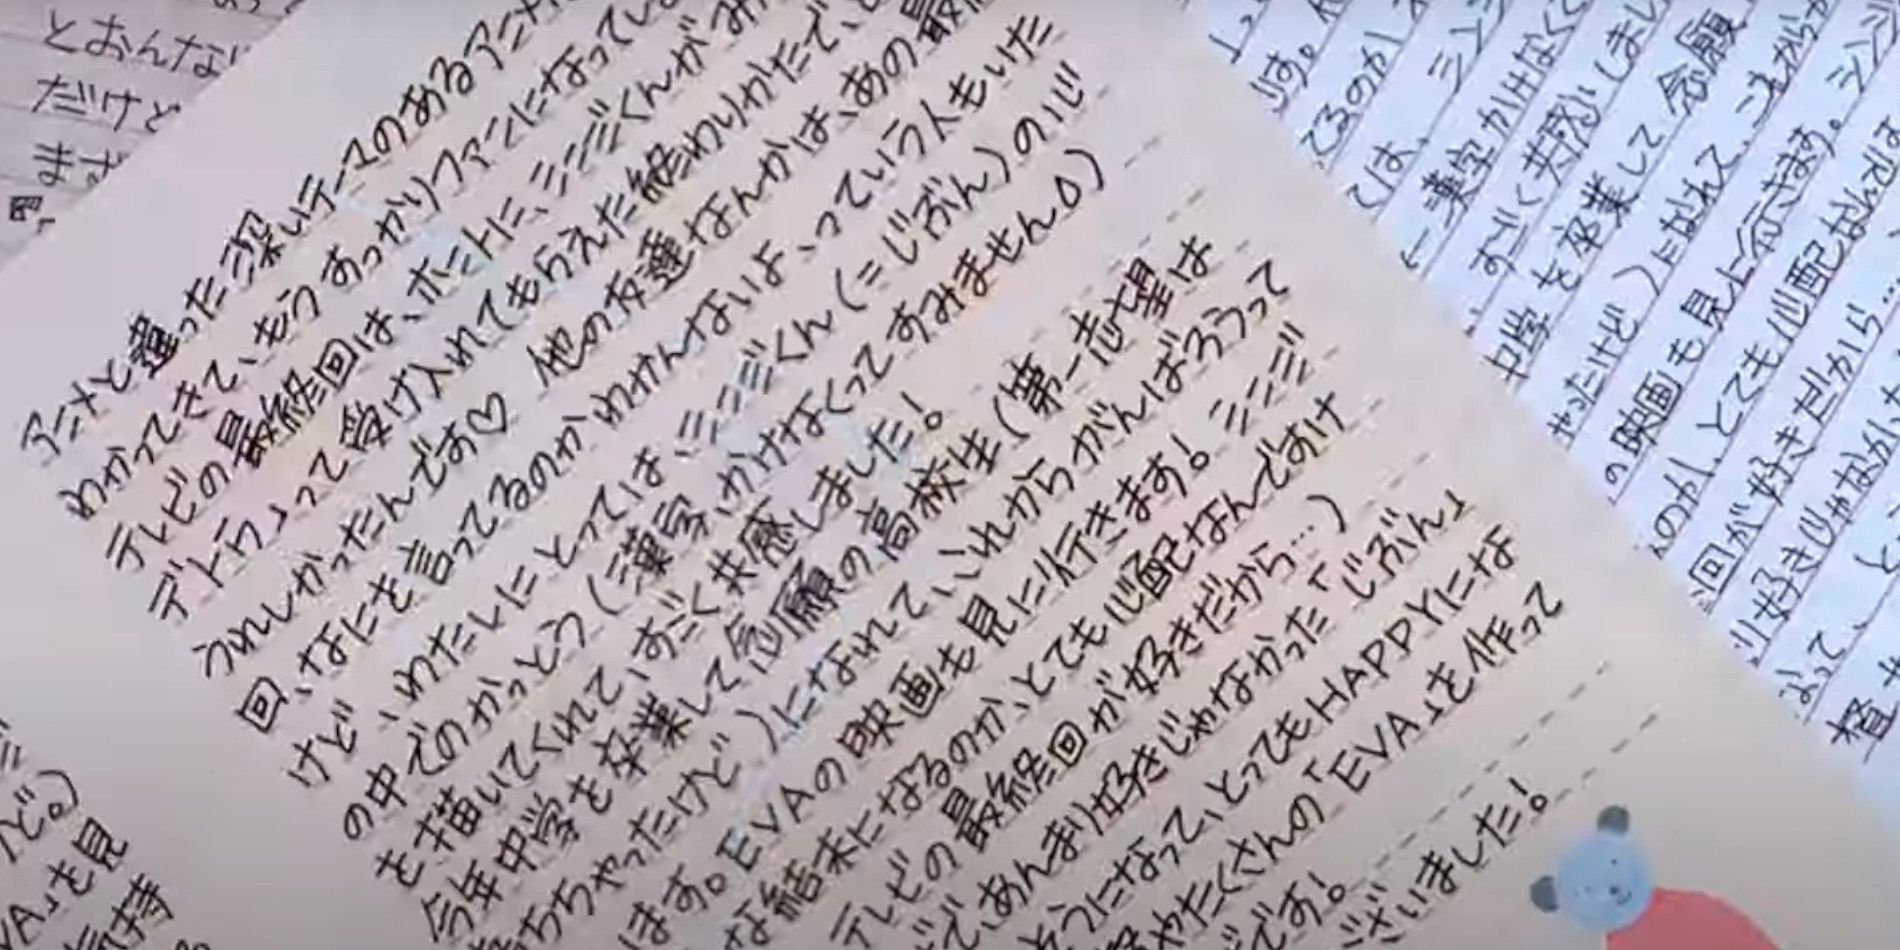 とおんな
だけど
アニメと違った深いテーマのあるアニメ
わかってきて、もうすっかりファンになってし
テレビの最終回は、ホントに、シンジくんがみ
デトウ」って受け入れてもらえた終わりかたで、
うれしかったんです♡ 他の友達なんかは、あの最
回、なにを言ってるのかわかんないよ、っていう人もいた
けど、わたしにとっては、シンジくん(=じぶん)の心
の中でのかっとう(漢字かけなくってすみません)
を描いてくれて、すごく共感しました!
今年中学を卒業して念願の高校生(第一志望は
ちゃったけど)になれて、これからがんばろうって
ます。EVAの映画も見に行きます! シンジ
な結末になるのか、とても心配なんですけ
テレビの最終回が好きだから…)
で、あんまり好きじゃなかった「じぶん」
そうになって、とってもHAPPYにな
たくさんの「EVA」を作って
です!
ございました!
ます。
てるのか
ては、シンジ
←漢字かけなくて
すごく共感しまし
中学を卒業して念願
ちゃったけど)になれて、これからが
の映画も見に行きます。シンジ
のか、とても心配なんだけ
回が好きだから…
り好きじゃなか
なって、と
ど。)
VA」を見
気持